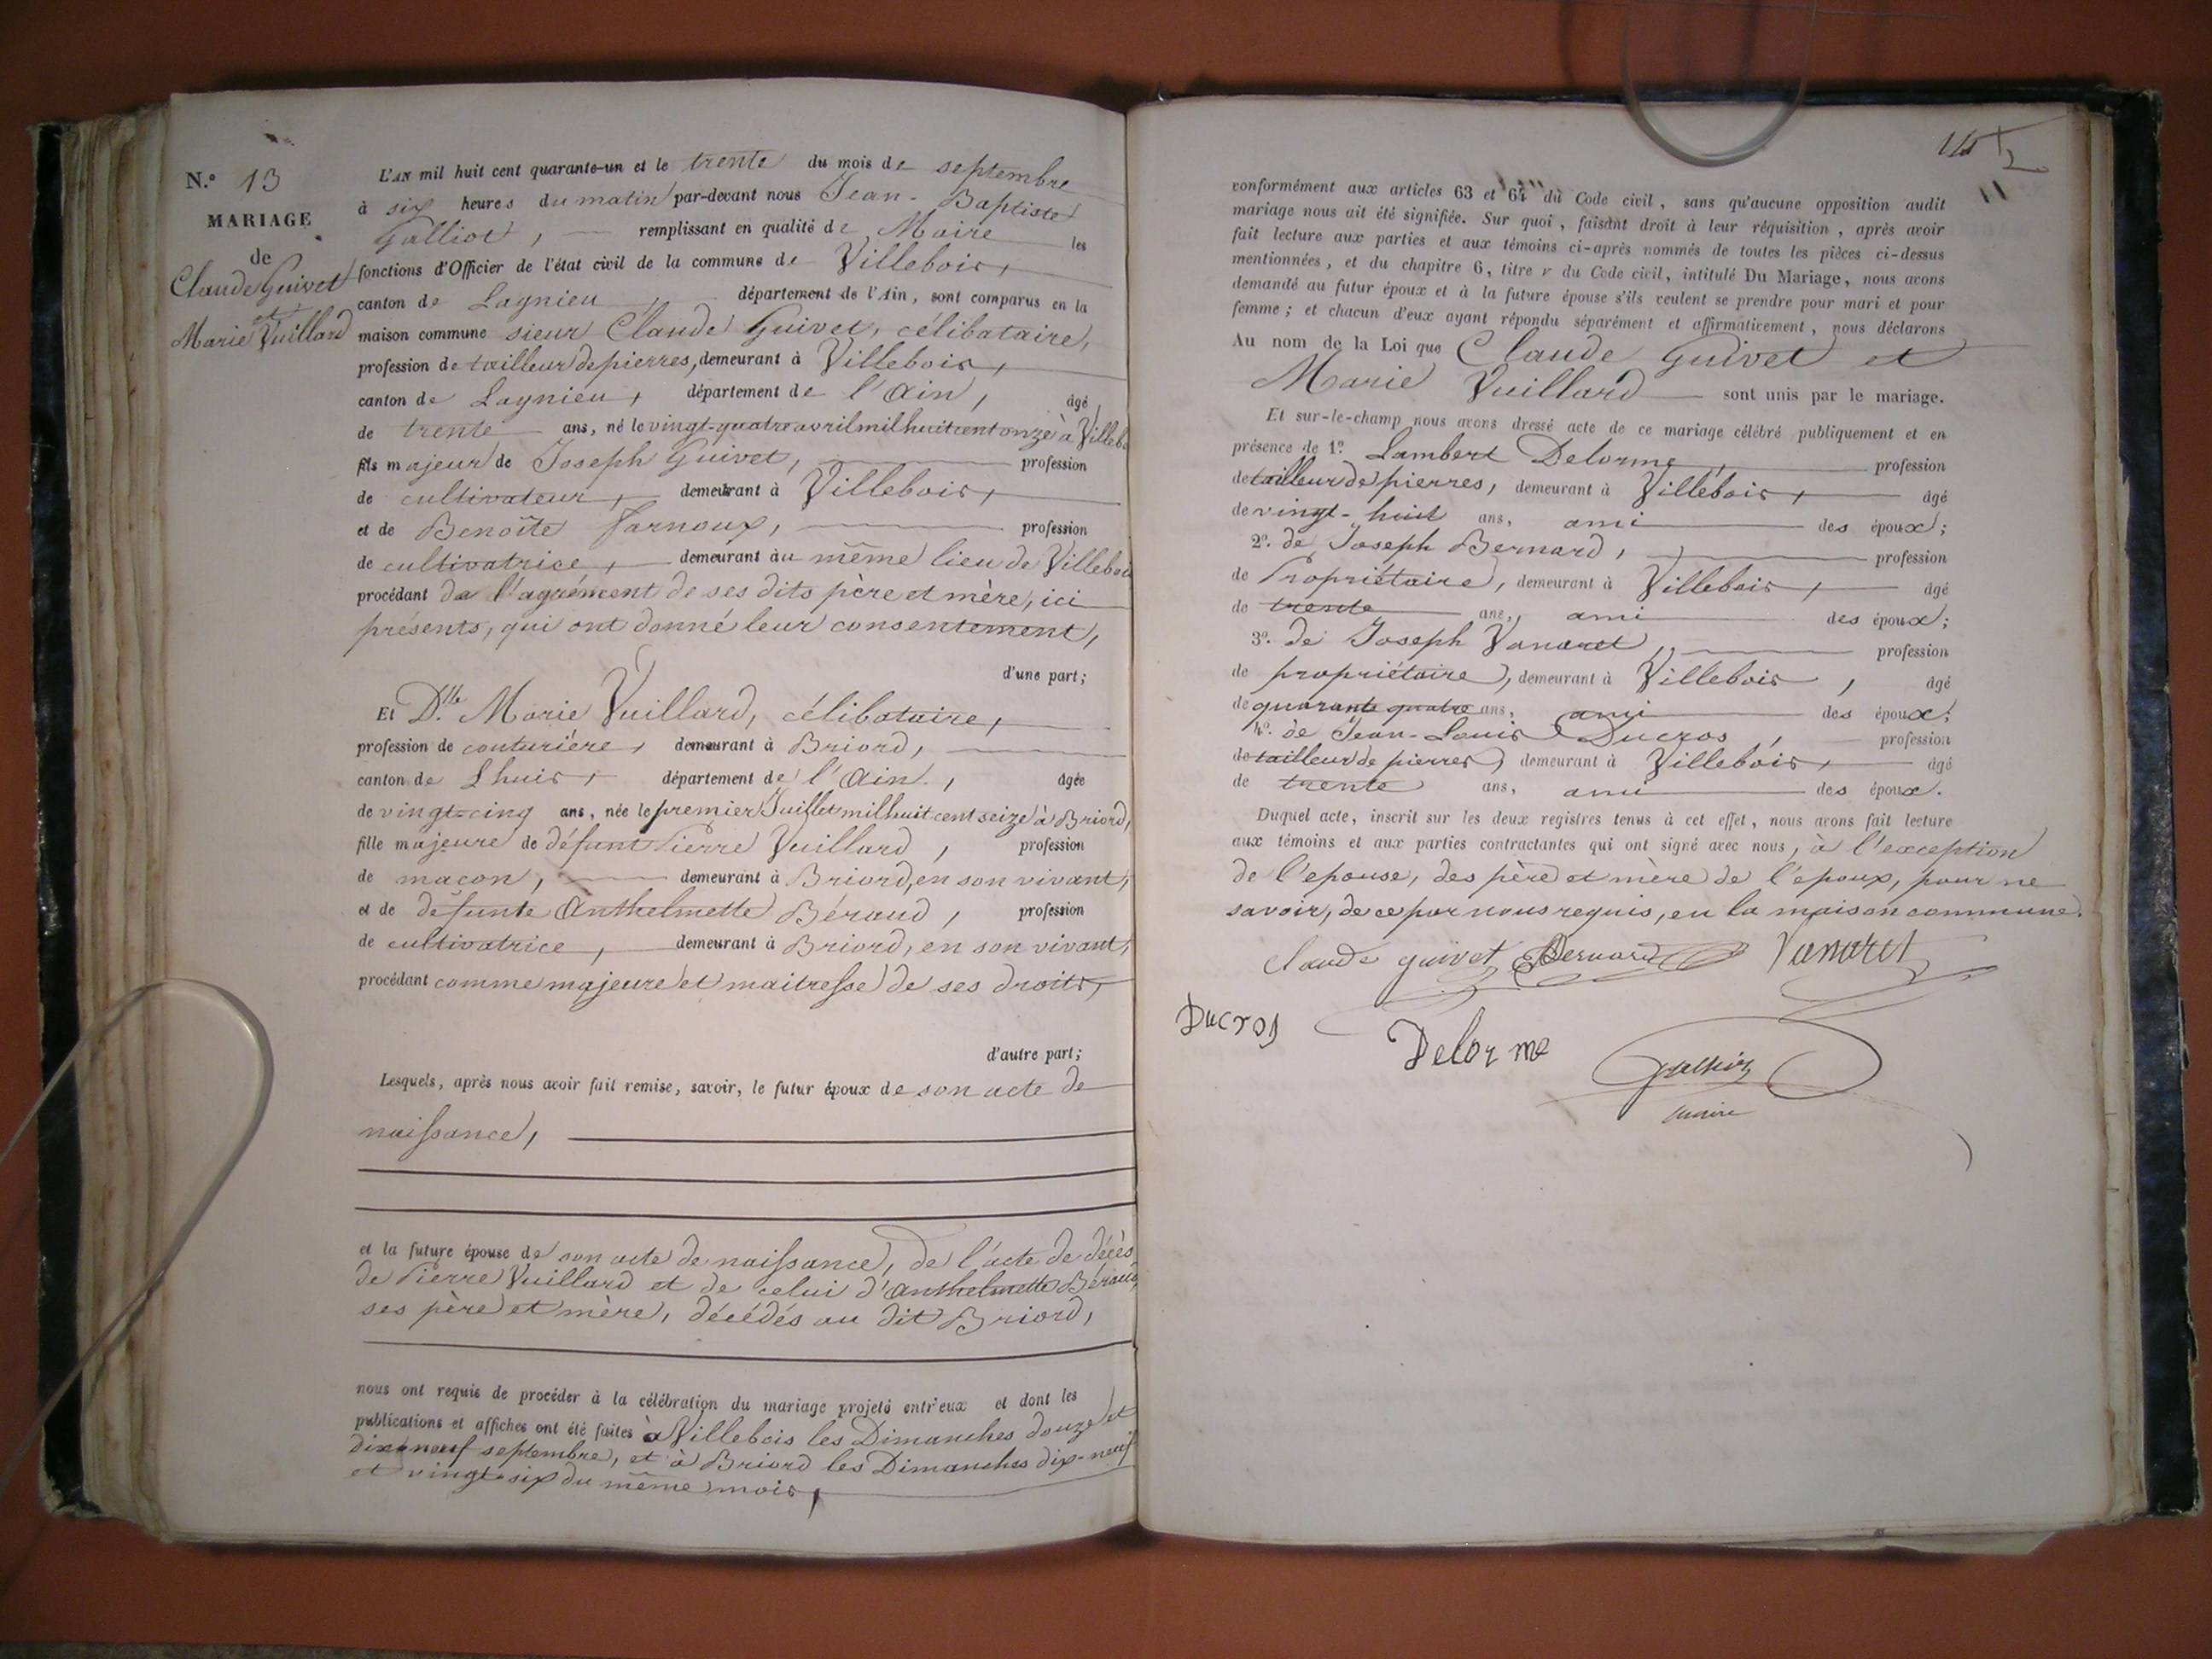 N.° 13
MARIAGE
de
Claude Guivet
et
Marie Vuillard
L'AN mil huit cent quarante-un et le trente du mois de septembre
à six heures du matin par-devant nous Jean-Baptiste
Galliot, remplissant en qualité de Maire les
fonctions d'Officier de l'état civil de la commune de Villebois,
canton de Lagnieu, département de l'Ain, sont comparus en la
maison commune sieur Claude Guivet, célibataire,
profession de tailleur de pierres, demeurant à Villebois,
canton de Lagnieu, département de l'Ain, âgé
de trente ans, né le vingt-quatre avril mil huit cent onze à Villebo
fils majeur de Joseph Guivet, profession
de cultivateur, demeurant à Villebois,
et de Benoîte Jarnoux, profession
de cultivatrice, demeurant au même lieu de Villebois
procédant de l'agrément de ses dits père et mère, ici
présents, qui ont donné leur consentement,
d'une part;
Et D.lle Marie Vuillard, célibataire,
profession de couturière, demeurant à Briord,
canton de Lhuis, département de l'Ain, âgée
de vingt-cinq ans, née le premier Juillet mil huit cent seize à Briord,
fille majeure de défunt Pierre Vuillard, profession
de maçon, demeurant à Briord, en son vivant,
et de défunte Anthelmette Béraud, profession
de cultivatrice, demeurant à Briord, en son vivant,
procédant comme majeure et maitresse de ses droits,
d'autre part;
Lesquels, après nous avoir fait remise, savoir, le futur époux de son acte de
naissance,
et la future épouse de son acte de naissance, de l'acte de décès
de Pierre Vuillard et de celui d'Anthelmette Béraud,
ses père et mère, décédés au dit Briord,
nous ont requis de procéder à la célébration du mariage projeté entr'eux et dont les
publications et affiches ont été faites à Villebois les Dimanches douze et
dix-neuf septembre, et à Briord les Dimanches dix-neuf
et vingt-six du même mois,
conformément aux articles 63 et 64 du Code civil, sans qu'aucune opposition audit
mariage nous ait été signifiée. Sur quoi, faisant droit à leur réquisition, après avoir
fait lecture aux parties et aux témoins ci-après nommés de toutes les pièces ci-dessus
mentionnées, et du chapitre 6, titre v du Code civil, intitulé Du Mariage, nous avons
demandé au futur époux et à la future épouse s'ils veulent se prendre pour mari et pour
femme; et chacun d'eux ayant répondu séparément et affirmativement, nous déclarons
Au nom de la Loi que Claude Guivet et
Marie Vuillard sont unis par le mariage.
Et sur-le-champ nous avons dressé acte de ce mariage célébré publiquement et en
présence de 1.° Lambert Delorme, profession
de tailleur de pierres, demeurant à Villebois, âgé
de vingt-huit ans, ami des époux;
2.° de Joseph Bernard, profession
de Propriétaire, demeurant à Villebois, âgé
de trente ans, ami des époux;
3.° de Joseph Vanaret, profession
de propriétaire, demeurant à Villebois, âgé
de quarante quatre ans, ami des époux;
4.° de Jean-Louis Ducros, profession
de tailleur de pierres, demeurant à Villebois, âgé
de trente ans, ami des époux.
Duquel acte, inscrit sur les deux registres tenus à cet effet, nous avons fait lecture
aux témoins et aux parties contractantes qui ont signé avec nous, à l'exception
de l'epouse, des père et mère de l'epoux, pour ne
savoir, de ce par nous requis, en la maison commune.
Claude guivet Bernard Vanaret
Ducros Delorme Galliot
maire